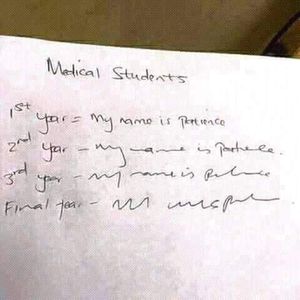 Medical Students
1st year = My name is Patience
2nd year - My name is Patience.
3rd year - My name is
Final year -